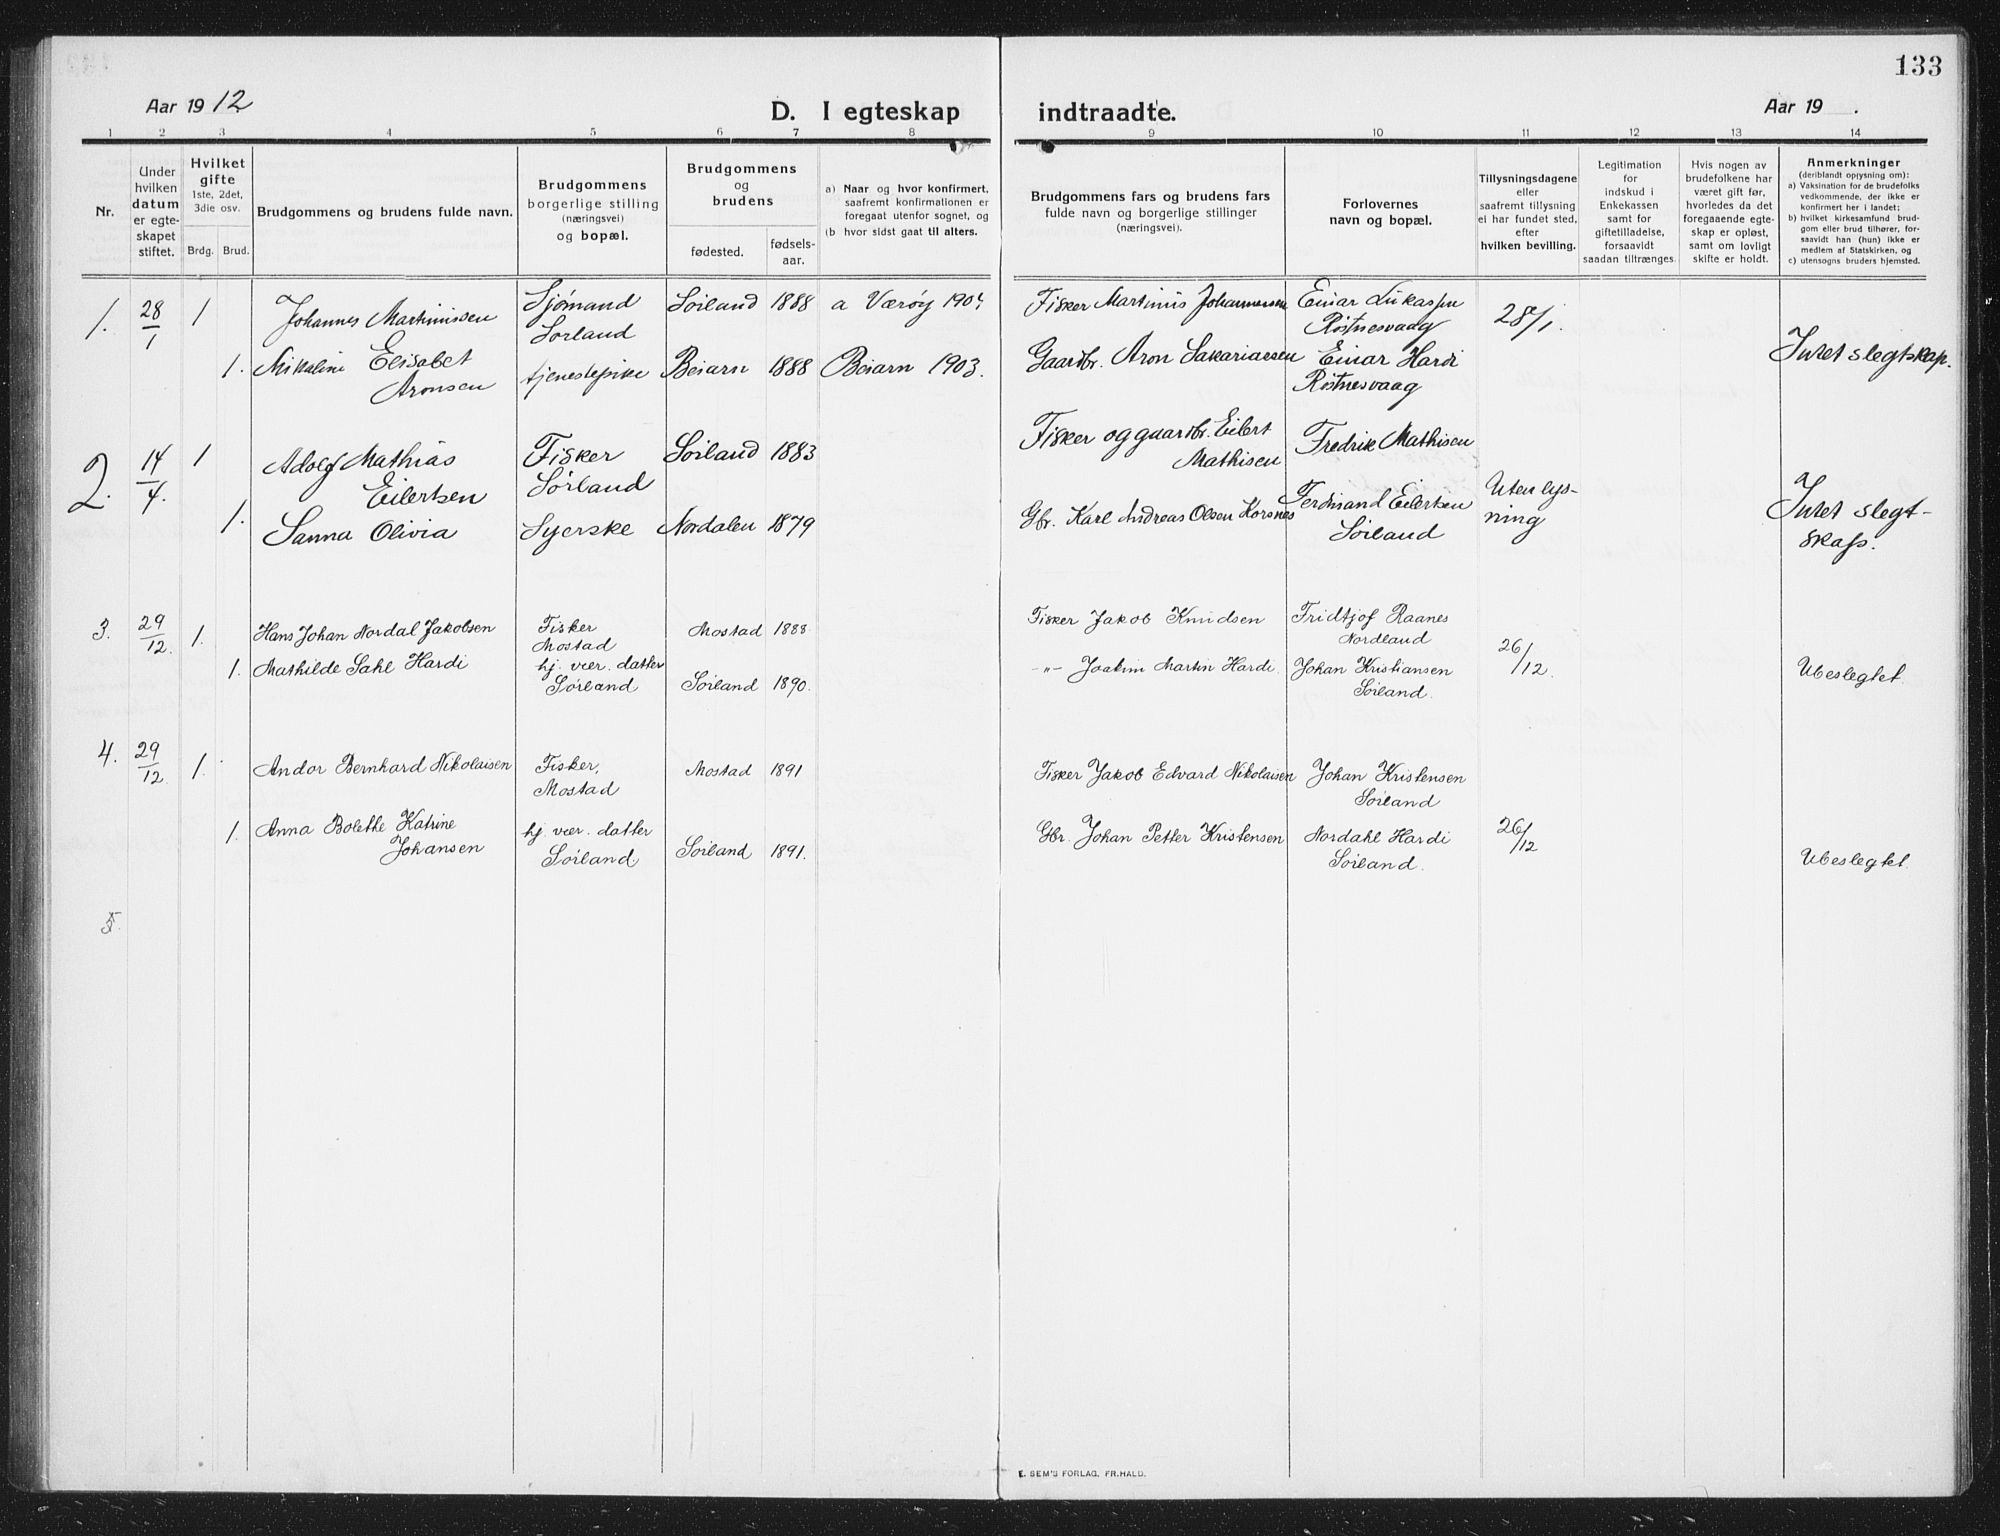 133
Aar 1912
D. I egteskap indtraadte.
Aar 19 .
1 2 3 4 5 6 7 8 9 10 11 12 13 14
Nr.
Under
hvilken
datum
er egte-
skapet
stiftet.
Hvilket
gifte
1ste, 2det,
3die osv.
Brdg. Brud.
Brudgommens og brudens fulde navn.
Brudgommens
borgerlige stilling
(næringsvei)
og bopæl.
Brudgommens
og
brudens
fødested.
fødsels-
aar.
a) Naar og hvor konfirmert,
saafremt konfirmationen er
foregaat utenfor sognet, og
(b hvor sidst gaat til alters.
Brudgommens fars og brudens fars
fulde navn og borgerlige stillinger
(næringsvei).
Forlovernes
navn og bopæl.
Tillysningsdagene
eller
saafremt tillysning
ei har fundet sted,
efter
hvilken bevilling.
Legitimation
for
indskud i
Enkekassen
samt for
giftetilladelse,
forsaavidt
saadan tiltrænges.
Hvis nogen av
brudefolkene har
været gift før,
hvorledes da det
foregaaende egte-
skap er opløst,
samt om lovligt
skifte er holdt.
Anmerkninger
(deriblandt opjysning om):
a) Vaksination for de brudefolks
vedkommende, der ikke er
konfirmert her i landet;
b) hvilket kirkesamfund brud-
gom eller brud tilhører, for-
saavidt han (hun) ikke er
medlem af Statskirken, og
c) utensogns bruders hjemsted.
1. 28/1 1 Johannes Martinussen Sjømand Sørland 1888 a Værøy 1904 Fisker Martinus Johannessen Einar Lukassen 28/1.
Sørland Røstnesvaag
1. Mikaline Elisabet tjenestepike Beiarn 1888 Beiarn 1903. Gaardbr. Aron Sakariassen Einar Hardi Intet slegtskap.
Aronsen Røstnesvaag
2. 14/4. 1 Adolf Mathias Fisker Sørland 1883 Fisker og gaardbr. Eilert Fredrik Mathisen
Eilertsen Sørland Mathisen
1. Sanna Olivia Syerske Nordalen 1879 Gbr. Karl Andreas Olsen Korsnes Ferdinand Eilertsen Uten lys- Intet slegt-
Sørland ning skap.
3. 29/12. 1. Hans Johan Nordal Jakobsen Fisker Mostad 1888 Fisker Jakob Knudsen Fridtjof Raanes
Mostad Nordland
1. Mathilde Sahl Hardi hj. vær. datter Sørland 1890. -"- Joakim Martin Hardi. Johan Kristiansen 26/12. Ubeslegtet.
Sørland Sørland.
4. 29/12 1. Andor Bernhard Nikolaisen Fisker, Mostad 1891 Fisker Jakob Edvard Nikolaisen Johan Kristensen
Mostad Sørland
1. Anna Bolette Katrine hj. vær. datter Sørland 1891. Gbr. Johan Petter Kristensen Nordahl Hardi 26/12 Ubeslegtet.
Johansen Sørland Sørland.
5.
E. SEM'S FORLAG. FR.HALD.